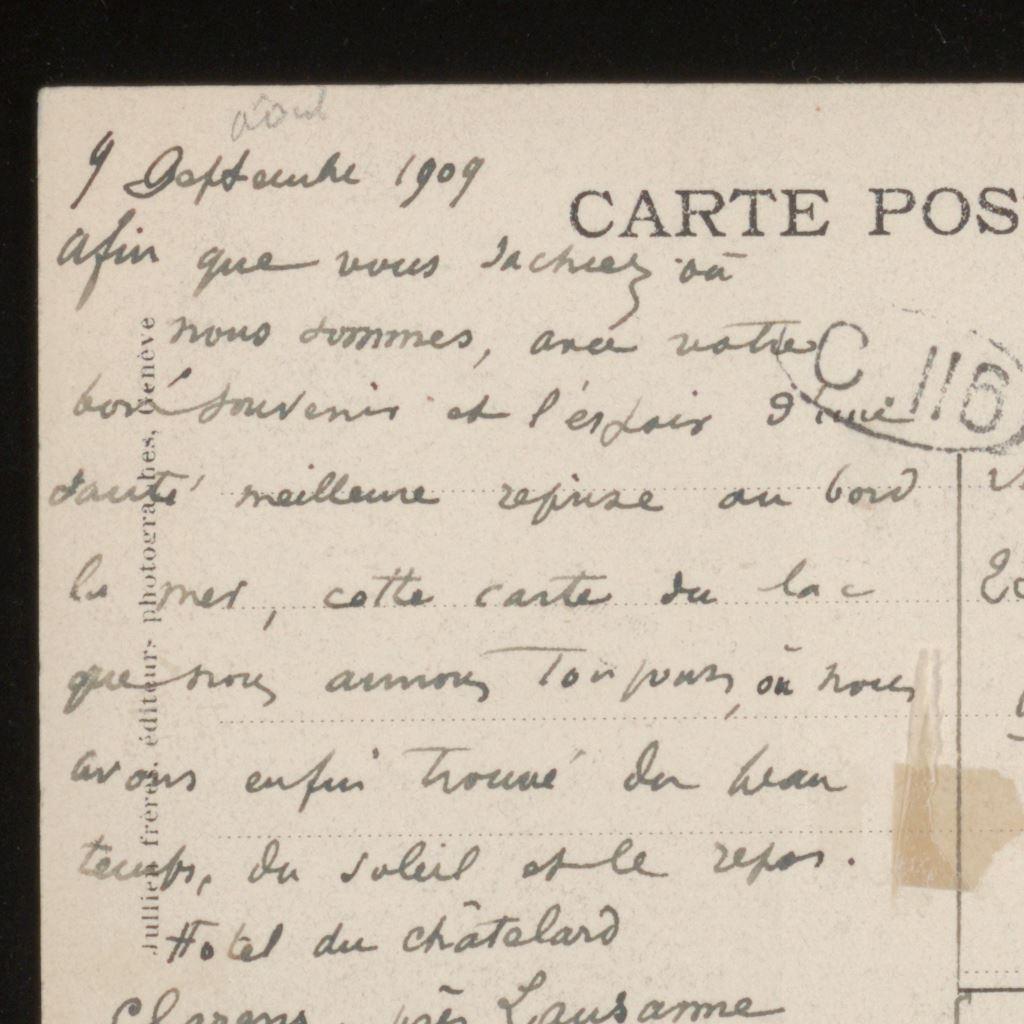 août
9 Septembre 1909
CARTE POS
afin que vous sachiez où
nous sommes, avec votre
C 116
bon souvenir et l'espoir d'une
santé meilleure reprise au bord
la mer, cette carte du lac
que nous aimons toujours, où nous
avons enfin trouvé du beau
temps, du soleil et le repos.
Hotel du châtelard
Clarens, près Lausanne
Jullien frères, éditeurs photographes, Genève